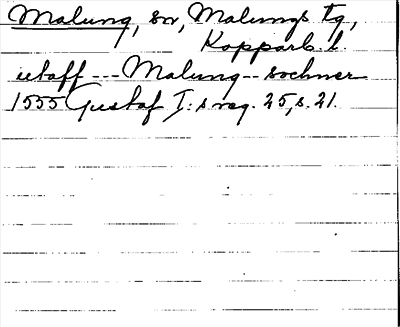 Malung, sn, Malungs tg,
Kopparb. l.
utaff --- Malung -- sochner
1555 Gustaf I:s reg. 25, s. 21.